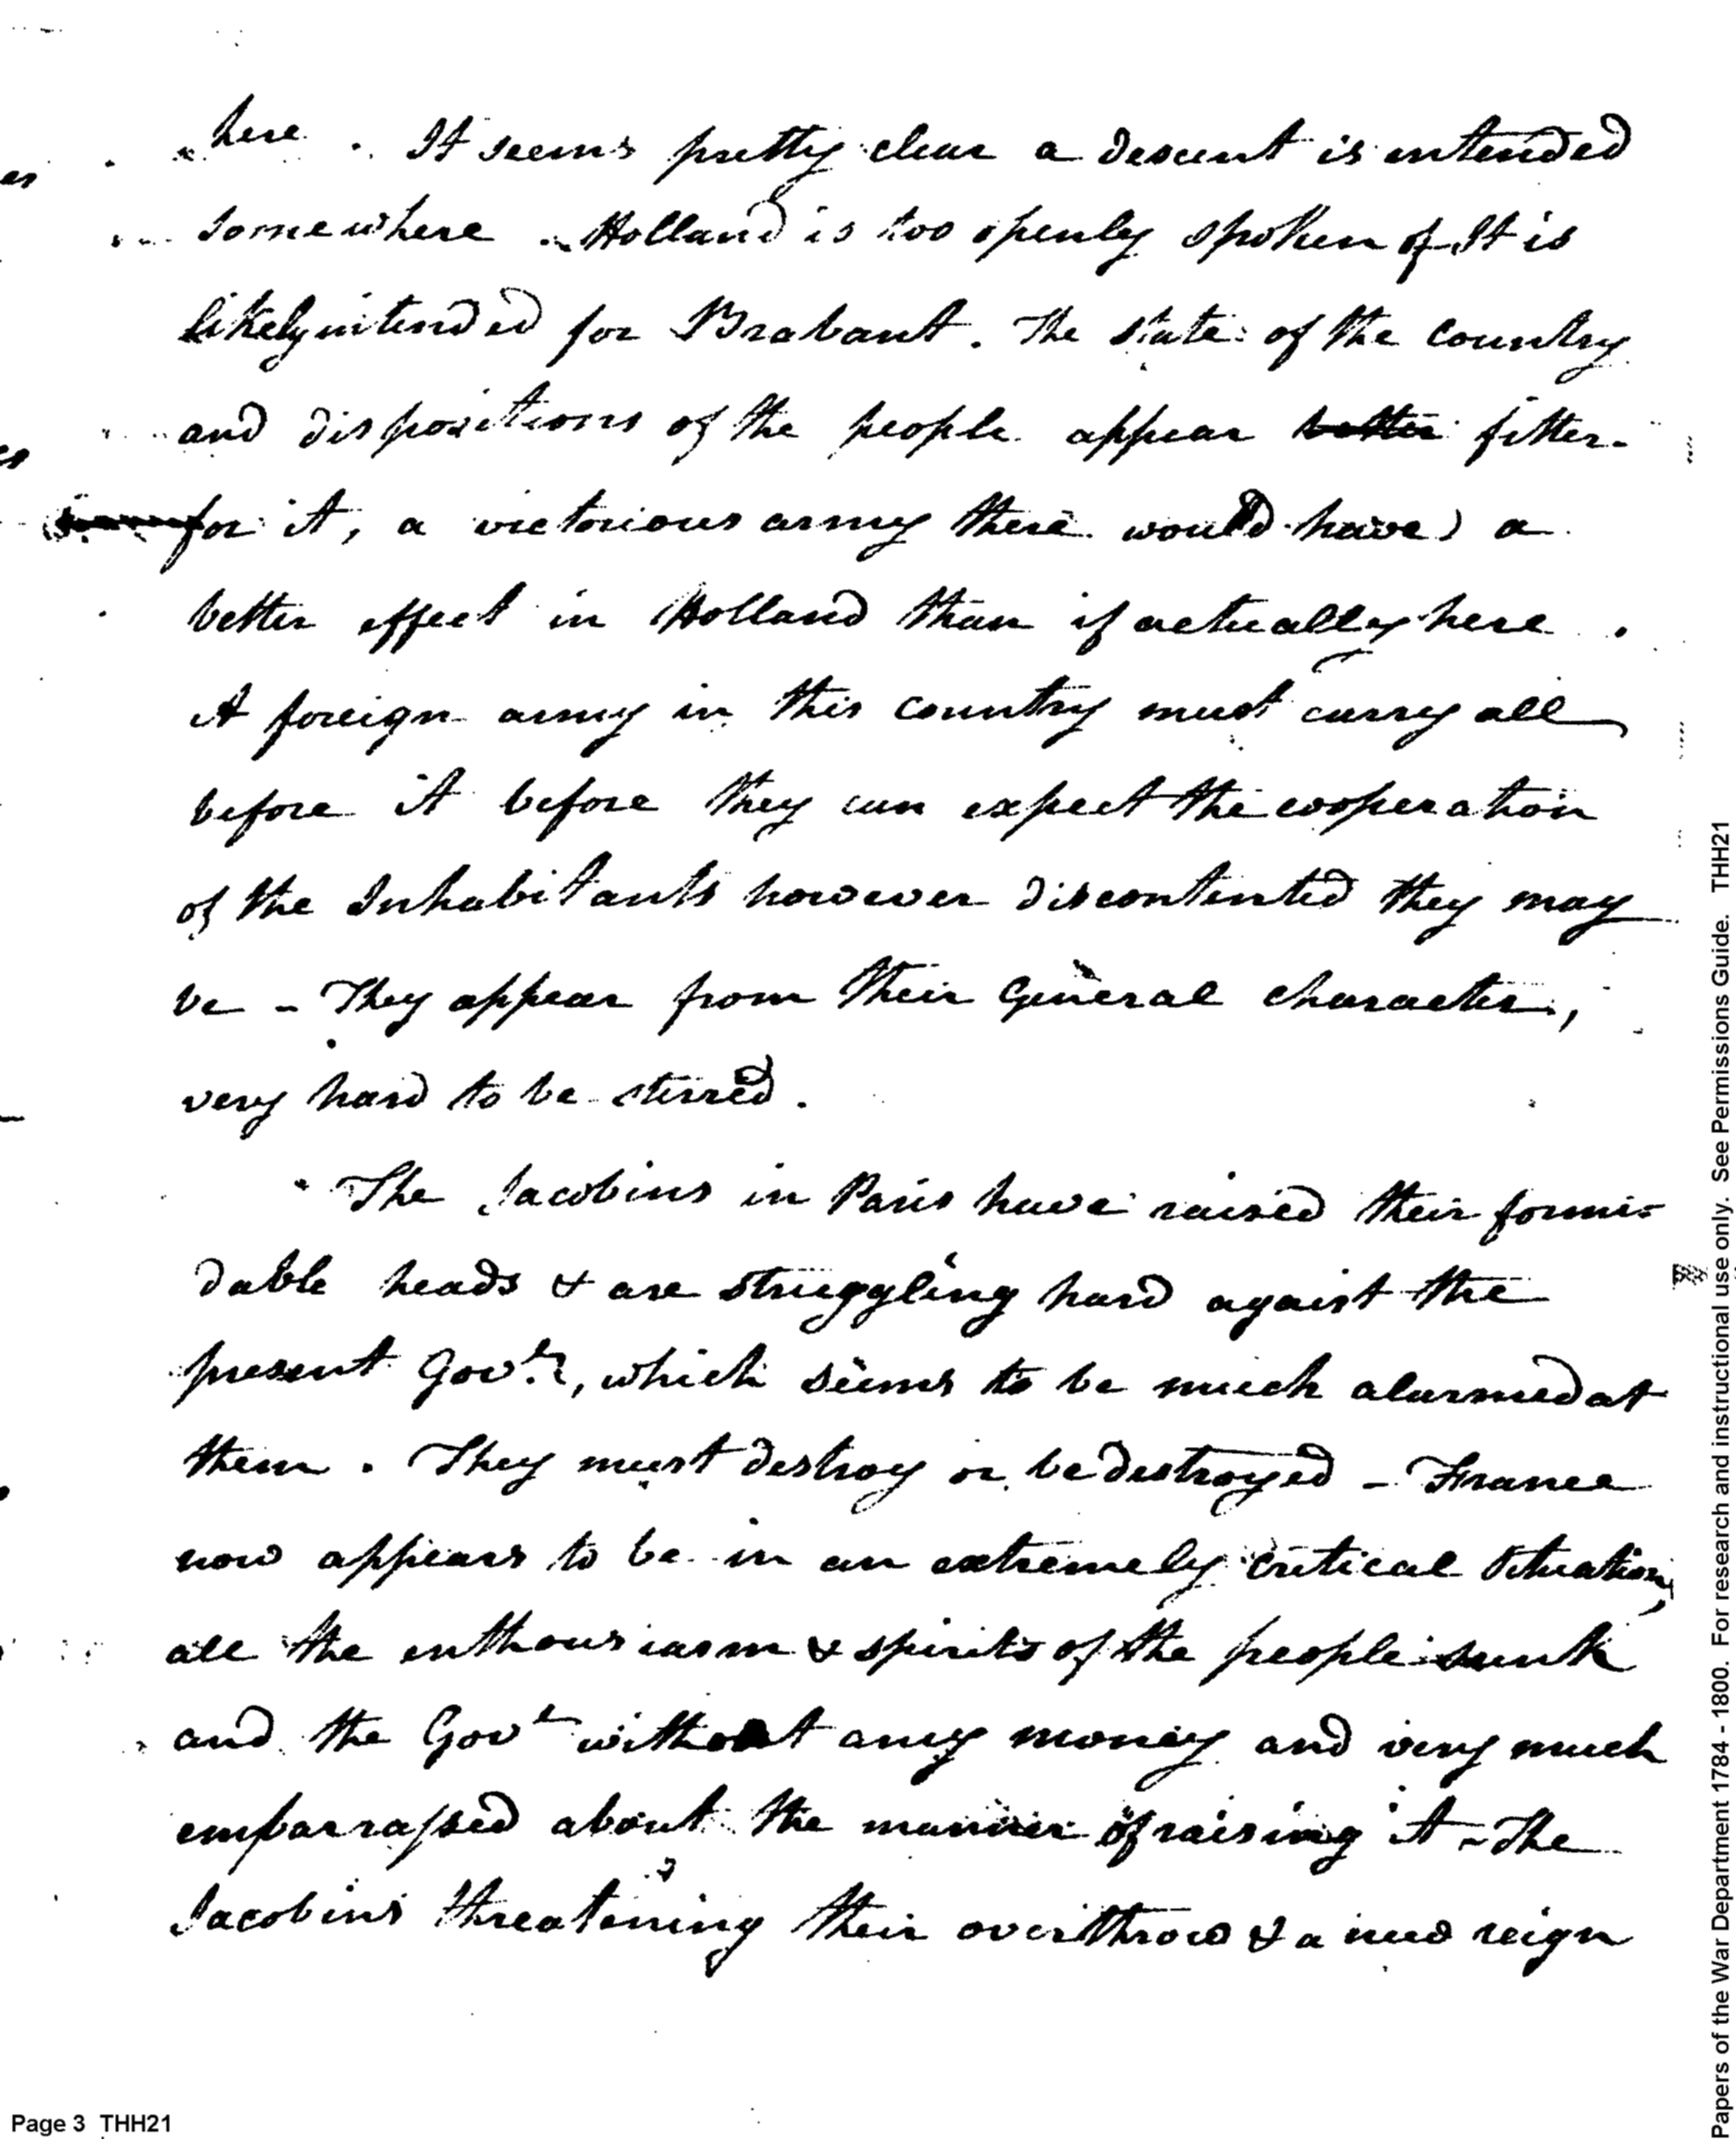 here. It seems pretty clear a descent is intended
somewhere - Holland is too openly spoken of It is
likely intended for Brabant. The state of the country
and dispositions of the people appear better fitter
for it, a victorious army there would have a
better effect in Holland than if actually here.
A foreign army in this country must carry all
before it before they can expect the cooperation
of the Inhabitants however discontented they may
be - They appear from their general character,
very hard to be stirred.
The Jacobins in Paris have raised their formi-
dable heads & are struggling hard against the
present Govt., which seems to be much alarmed at
them. They must destroy or be destroyed - France
now appears to be in an extremely critical situation,
all the enthousiasm & spirits of the people sunk
and the Govt without any money and very much
embarrassed about the manner of raising it - The
Jacobins threatening their overthrow & a new reign
Page 3 THH21
Papers of the War Department 1784 - 1800. For research and instructional use only. See Permissions Guide. THH21